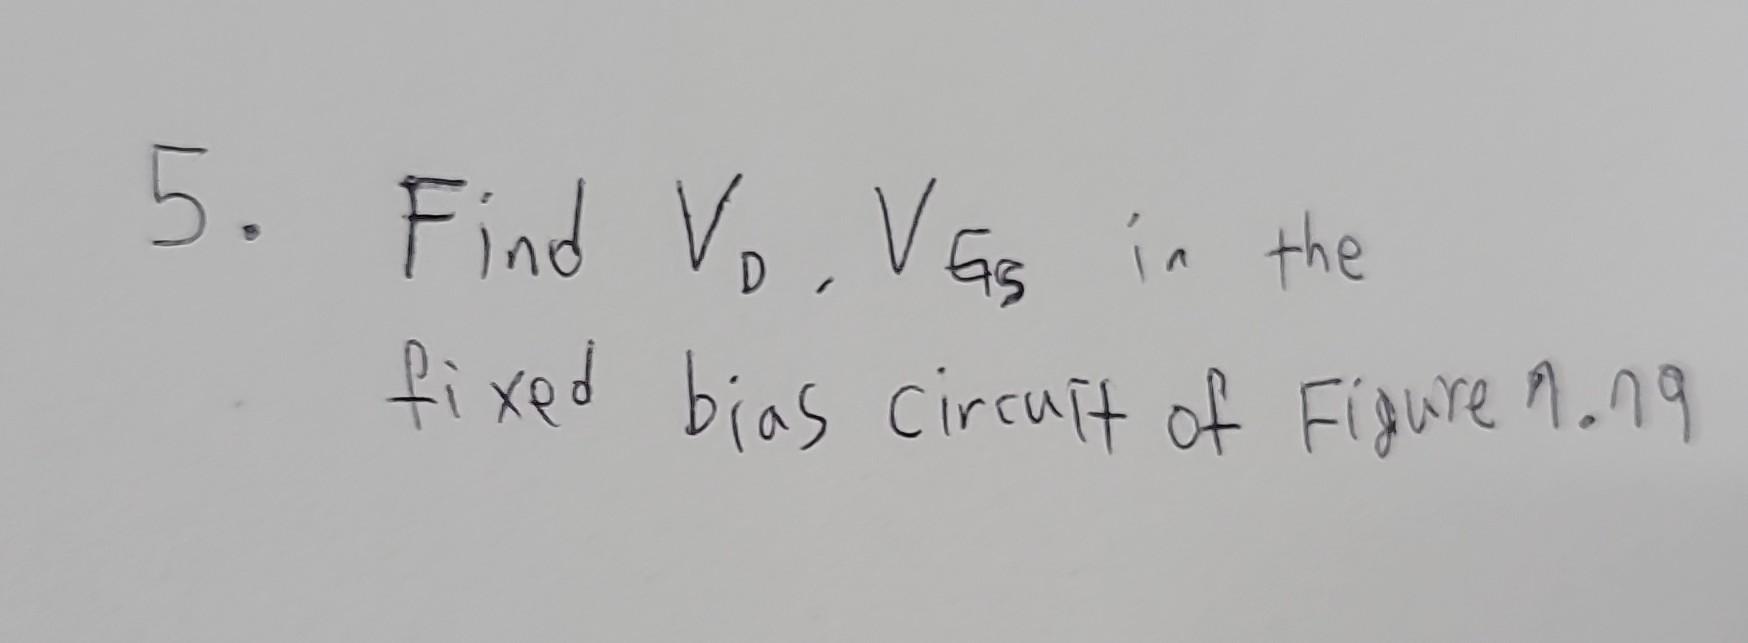 5. Find VD, VGS in the
fixed bias circuit of Figure 7.79